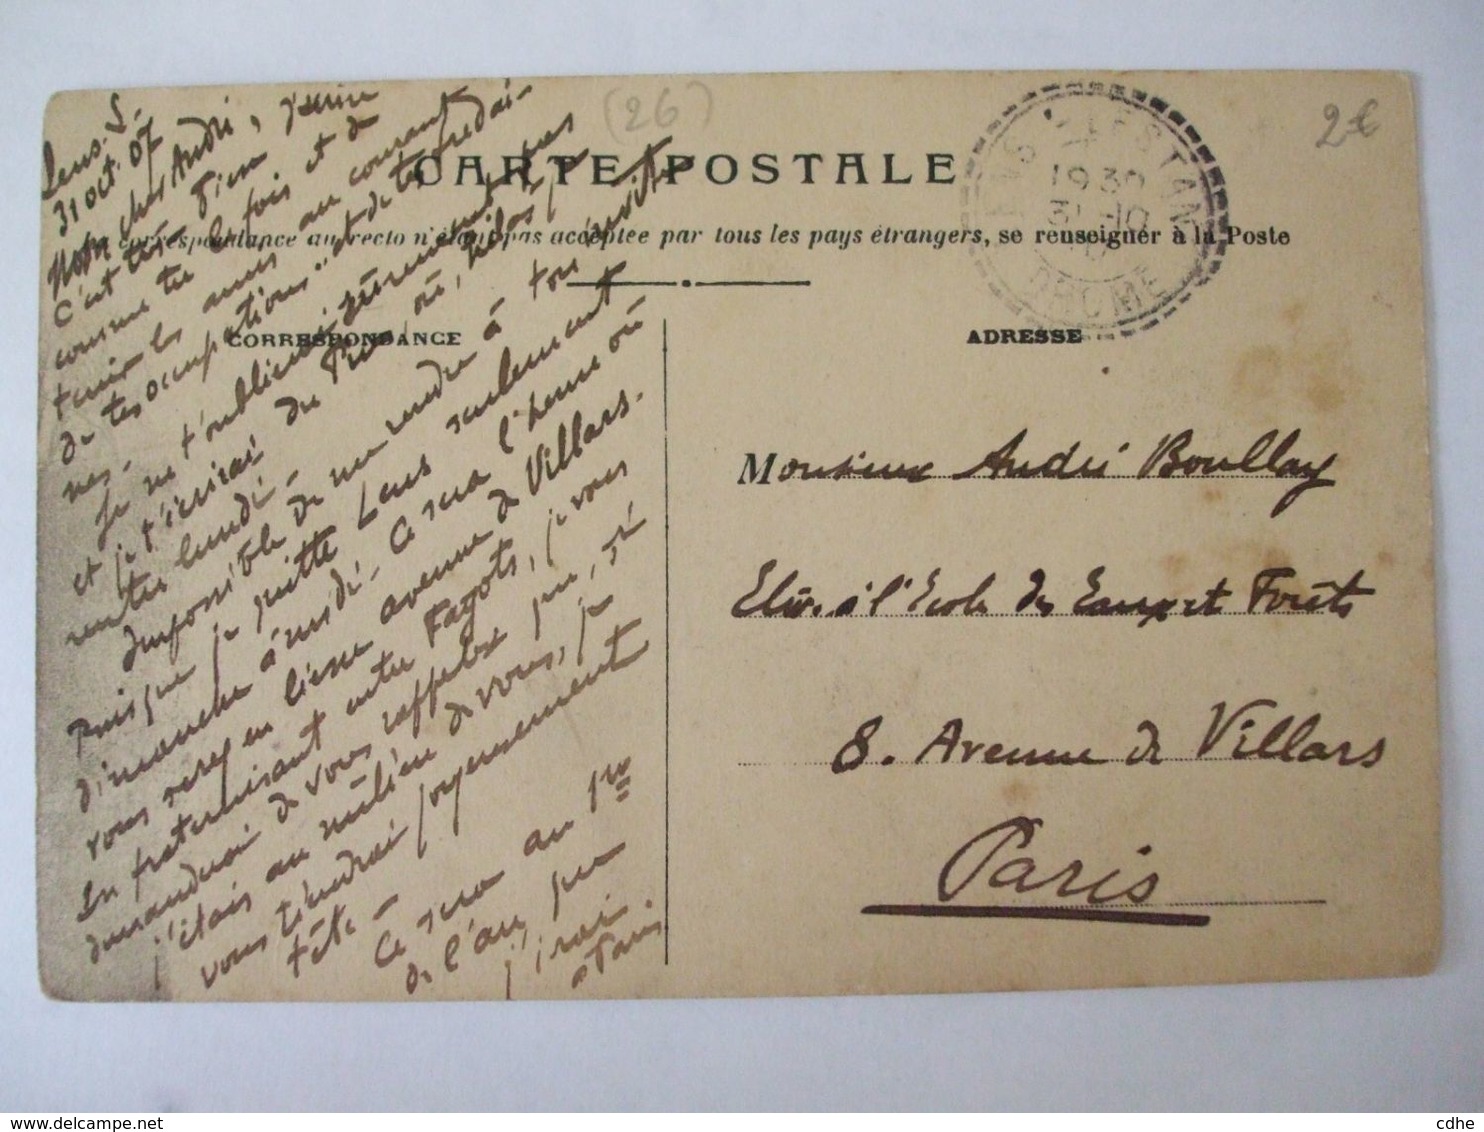 Lens-L-
31 oct. 07
(26)
2€
Mon cher André, j'écris
C'est très bien
comme tu le fois et de
tenir les amis au courant
de tes occupations" et de tes fredai-
nes.
CARTE POSTALE
La correspondance au recto n'étant pas acceptée par tous les pays étrangers, se renseigner à la Poste
CORRESPONDANCE
ADRESSE
19 30
31 -10
DROME
Je ne t'oublierai sûrement pas
et je t'écrirai du
rentre lundi-
Impossible de me rendre à ton invite
Puisque je quitte Lens seulement
dimanche à midi- Ce sera l'heure où
vous serez en liesse avenue de Villars.
En fraternisant entre Fagots, je vous
demanderai de vous rappeler que, si
j'étais au milieu de vous, je
vous tiendrai joyeusement
tête-
Ce sera au 1er
de l'an, que
j'irai
à Paris.
Monsieur André Boullay
Elève à l'Ecole des Eaux et Forêts
8. Avenue de Villars
Paris
www.delcampe.net
cdhe